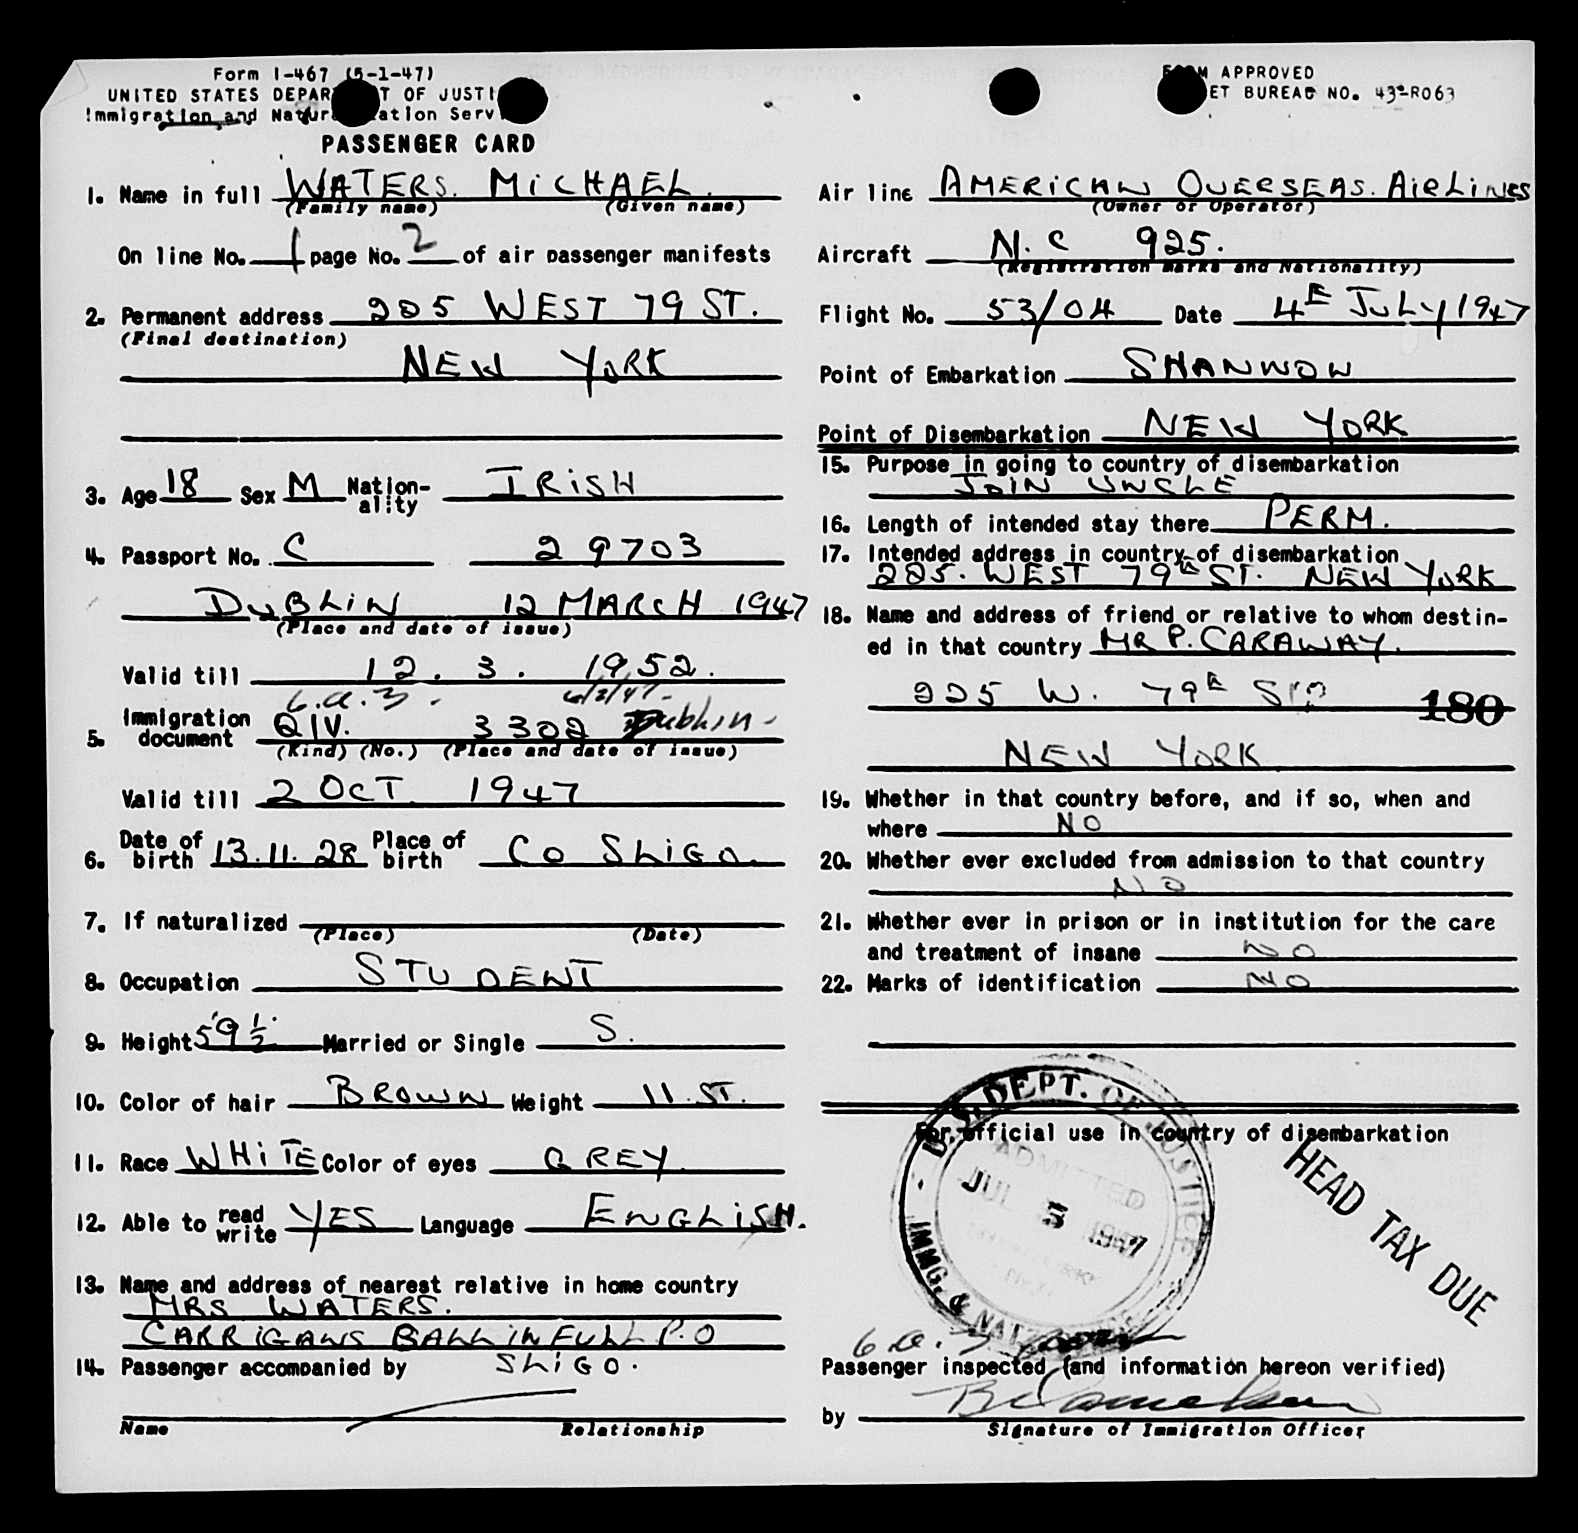 Form I-467 (5-1-47)
UNITED STATES OF
Immigration and
PASSENGER CARD
1. Name in full WATERS. MiCHAEL.
(Family name) (Given name)
On line No. 1 page No. 2 of air passenger manifests
2. Permanent address 225 WEST 79 ST.
(Final destination)
NEW YORK
3. Age 18 Sex M Nation-ality IRiSH
4. Passport No. C 29703
DUBLiN 12 MARCH 1947
(Place and date of issue)
Valid till 12. 3. 1952.
6.a.3. 6/3/47-
5. Immigration document QIV. 3302 Dublin-
(Kind) (No.) (Place and date of issue)
Valid till 2 OCT 1947
6. Date of birth 13.11.28 Place of birth CO SLiGO.
7. If naturalized
(Place) (Date)
8. Occupation STUDENT
9. Height 5'9½ Married or Single S.
10. Color of hair BROWN Weight 11.ST.
11. Race WHiTE Color of eyes GREY.
12. Able to read write YES Language ENGLiSH.
13. Name and address of nearest relative in home country
MRS WATERS.
CARRiGANS BALLiNFULL P.O
14. Passenger accompanied by SLiGO.
Name Relationship
FORM APPROVED
BUREAU NO. 43-R063
Air line AMERiCAN OVERSEAS. AiRLiNES
(Owner or Operator)
Aircraft N.C 925.
(Registration marks and Nationality)
Flight No. 53/04 Date 4E JULY 1947
Point of Embarkation SHANNON
Point of Disembarkation NEW YORK
15. Purpose in going to country of disembarkation
JOIN UNCLE
16. Length of intended stay there PERM.
17. Intended address in country of disembarkation
225. WEST 79E ST. NEW YORK
18. Name and address of friend or relative to whom destin-
ed in that country MR P. CARAWAY.
225 W. 79E 180
NEW YORK
19. Whether in that country before, and if so, when and
where NO
20. Whether ever excluded from admission to that country
NO
21. Whether ever in prison or in institution for the care
and treatment of insane NO
22. Marks of identification NO
For official use in country of disembarkation
U.S. DEPT. OF JUSTICE
ADMITTED
JUL 5 1947
IMMG. & NATZ
HEAD TAX DUE
Passenger inspected (and information hereon verified)
by
Signature of Immigration Officer